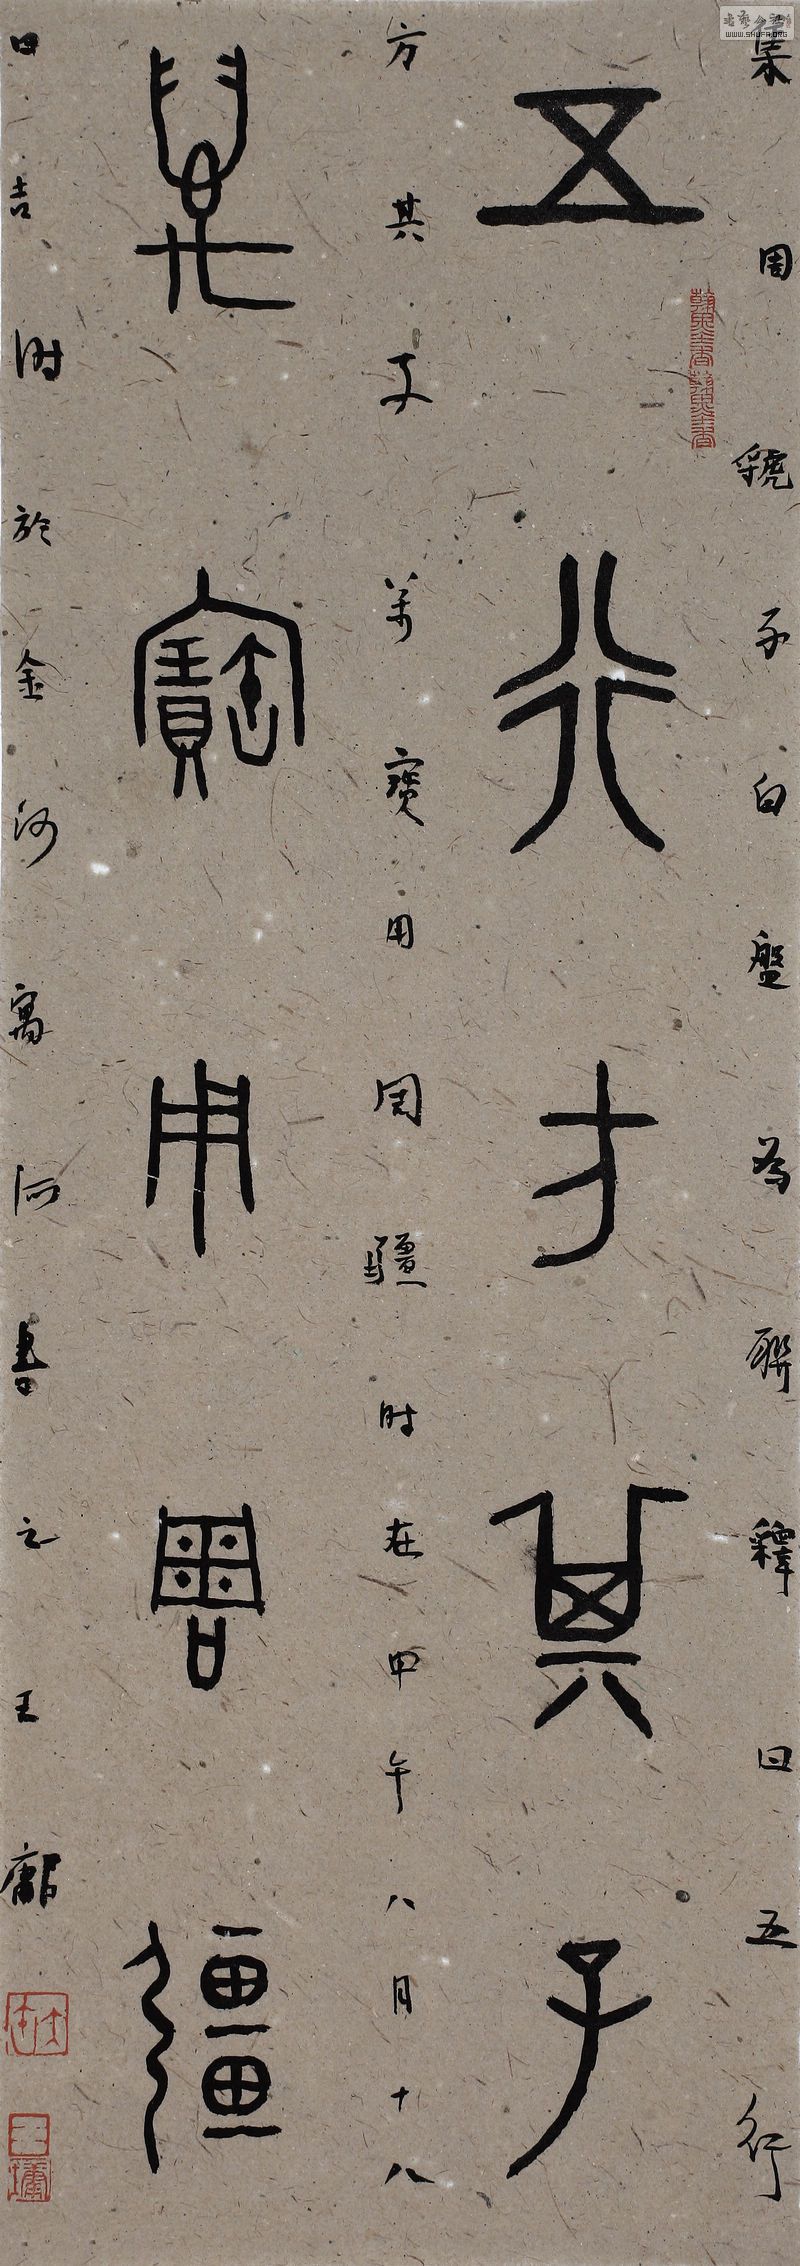 集周虢子白盤為聯釋曰五行
五行方其子
方其子萬寶用周疆時在甲午八月十八
萬寶用周疆
日吉時於金河寓所書之王
书艺公社
WWW.SHUFA.ORG